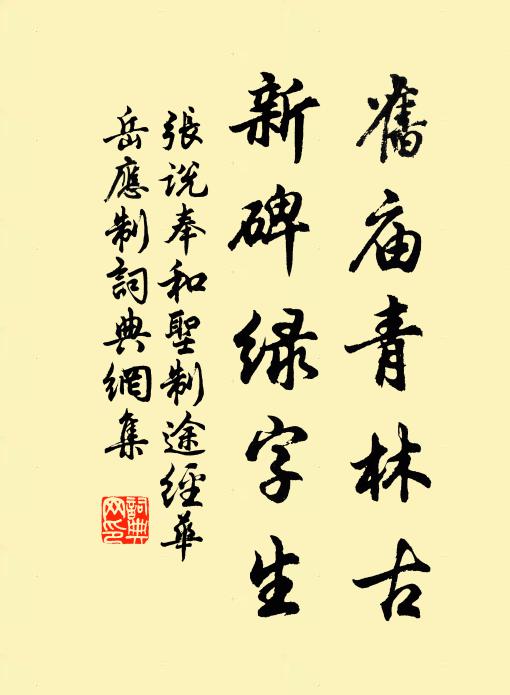 舊庙青林古
新碑绿字生
張说奉和聖制途經華
岳應制詞典網集
詞典网印